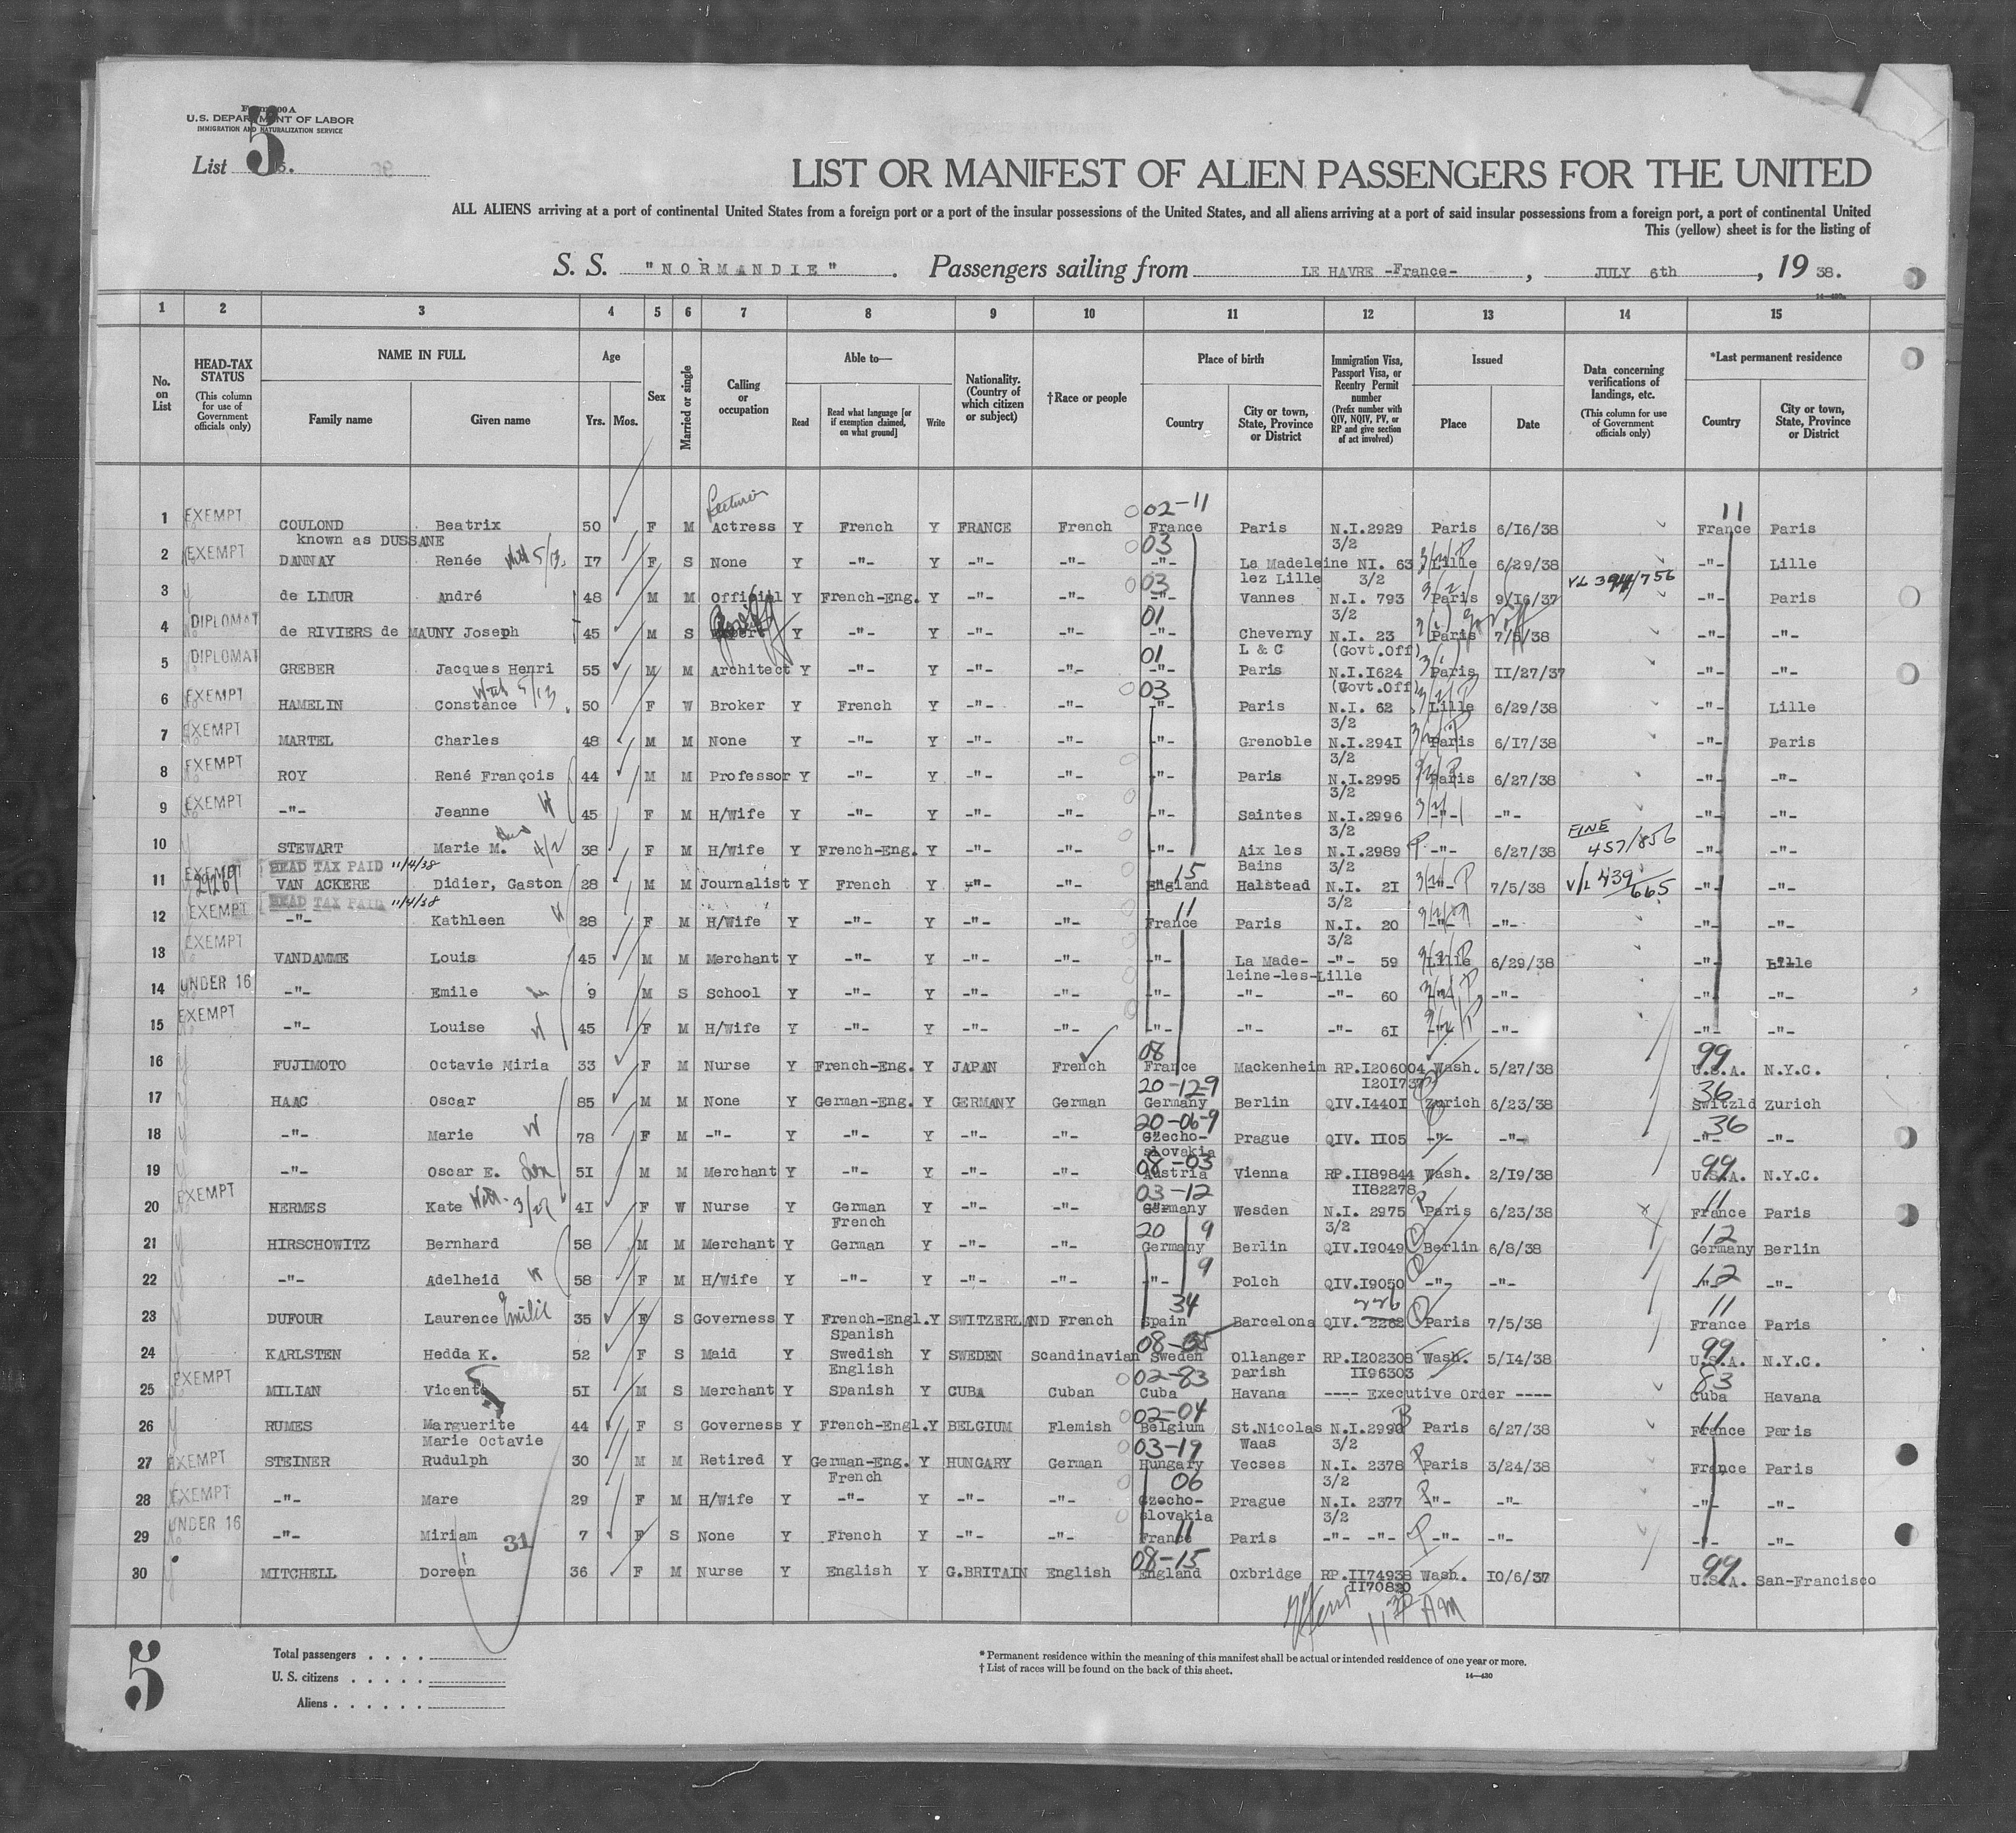 Form 500 A
U.S. DEPARTMENT OF LABOR
IMMIGRATION AND NATURALIZATION SERVICE
List 5
LIST OR MANIFEST OF ALIEN PASSENGERS FOR THE UNITED
ALL ALIENS arriving at a port of continental United States from a foreign port or a port of the insular possessions of the United States, and all aliens arriving at a port of said insular possessions from a foreign port, a port of continental United
This (yellow) sheet is for the listing of
S. S. "NORMANDIE". Passengers sailing from LE HAVRE -France-, JULY 6th, 19 38.
1 2 3 4 5 6 7 8 9 10 11 12 13 14 15
No. on List
HEAD-TAX STATUS (This column for use of Government officials only)
NAME IN FULL Family name Given name
Age Yrs. Mos.
Sex
Married or single
Calling or occupation
Able to— Read Read what language [or if exemption claimed, on what ground] Write
Nationality. (Country of which citizen or subject)
†Race or people
Place of birth Country City or town, State, Province or District
Immigration Visa, Passport Visa, or Reentry Permit number (Prefix number with QIV, NQIV, PV, or RP and give section of act involved)
Issued Place Date
Data concerning verifications of landings, etc. (This column for use of Government officials only)
*Last permanent residence Country City or town, State, Province or District
Lecturer 02-11 11
1 EXEMPT COULOND Beatrix 50 F M Actress Y French Y FRANCE French France Paris N.I.2929 Paris 6/16/38 France Paris
known as DUSSANE 03 3/2
2 EXEMPT DANNAY Renée 17 F S None Y -"- Y -"- -"- -"- La Madeleine NI. 63 Lille 6/29/38 -"- Lille
03 lez Lille 3/2 VL 394/756
3 de LIMUR André 48 M M Official Y French-Eng. Y -"- -"- -"- Vannes N.I. 793 Paris 9/16/37 -"- Paris
01 3/2
4 DIPLOMAT de RIVIERS de MAUNY Joseph 45 M S Y -"- Y -"- -"- -"- Cheverny N.I. 23 Paris 7/5/38 -"- -"-
01 L & C (Govt.Off)
5 DIPLOMAT GREBER Jacques Henri 55 M M Architect Y -"- Y -"- -"- -"- Paris N.I.1624 Paris 11/27/37 -"- -"-
03 (Govt.Off)
6 EXEMPT HAMELIN Constance 50 F W Broker Y French Y -"- -"- -"- Paris N.I. 62 Lille 6/29/38 -"- Lille
3/2
7 EXEMPT MARTEL Charles 48 M M None Y -"- Y -"- -"- -"- Grenoble N.I.2941 Paris 6/17/38 -"- Paris
3/2
8 EXEMPT ROY René François 44 M M Professor Y -"- Y -"- -"- -"- Paris N.I.2995 Paris 6/27/38 -"- -"-
3/2
9 EXEMPT -"- Jeanne W 45 F M H/Wife Y -"- Y -"- -"- -"- Saintes N.I.2996 -"- -"- -"- -"-
3/2 FINE 457/856
10 STEWART Marie M. 38 F M H/Wife Y French-Eng. Y -"- -"- -"- Aix les N.I.2989 -"- 6/27/38 -"- -"-
EXEMPT HEAD TAX PAID 11/4/38 15 Bains 3/2
11 VAN ACKERE Didier, Gaston 28 M M Journalist Y French Y -"- -"- England Halstead N.I. 21 -"- 7/5/38 V/L 439/665 -"- -"-
HEAD TAX PAID 11/4/38 11 3/2
12 EXEMPT -"- Kathleen W 28 F M H/Wife Y -"- Y -"- -"- France Paris N.I. 20 -"- -"- -"- -"-
3/2
13 EXEMPT VANDAMME Louis 45 M M Merchant Y -"- Y -"- -"- -"- La Made- -"- 59 Lille 6/29/38 -"- Lille
leine-les-Lille
14 UNDER 16 -"- Emile 9 M S School Y -"- Y -"- -"- -"- -"- -"- 60 -"- -"- -"- -"-
15 EXEMPT -"- Louise W 45 F M H/Wife Y -"- Y -"- -"- -"- -"- -"- 61 -"- -"- -"- -"-
08 99
16 FUJIMOTO Octavie Miria 33 F M Nurse Y French-Eng. Y JAPAN French France Mackenheim RP.1206004 Wash. 5/27/38 U.S.A. N.Y.C.
20-12-9 36
17 HAAC Oscar 85 M M None Y German-Eng. Y GERMANY German Germany Berlin QIV.14401 Zurich 6/23/38 Switzld Zurich
20-06-9 36
18 -"- Marie W 78 F M -"- Y -"- Y -"- -"- Czecho- Prague QIV. 1105 -"- -"- -"- -"-
slovakia
08-03 99
19 -"- Oscar E. Son 51 M M Merchant Y -"- Y -"- -"- Austria Vienna RP.1189844 Wash. 2/19/38 U.S.A. N.Y.C.
03-12 1182278 11
20 EXEMPT HERMES Kate 41 F W Nurse Y German Y -"- -"- Germany Wesden N.I. 2975 Paris 6/23/38 France Paris
French 20 9 3/2 12
21 HIRSCHOWITZ Bernhard 58 M M Merchant Y German Y -"- -"- Germany Berlin QIV.19049 Berlin 6/8/38 Germany Berlin
9 12
22 -"- Adelheid W 58 F M H/Wife Y -"- Y -"- -"- -"- Polch QIV.19050 -"- -"- -"- -"-
34 226 11
23 DUFOUR Laurence Emilie 35 F S Governess Y French-Engl. Y SWITZERLAND French Spain Barcelona QIV. 2262 Paris 7/5/38 France Paris
Spanish
08- 99
24 KARLSTEN Hedda K. 52 F S Maid Y Swedish Y SWEDEN Scandinavian Sweden Ollanger RP.1202308 Wash. 5/14/38 U.S.A. N.Y.C.
English 02-83 parish 1196303 83
25 EXEMPT MILIAN Vicente 51 M S Merchant Y Spanish Y CUBA Cuban Cuba Havana ---- Executive Order ---- Cuba Havana
02-04 11
26 RUMES Marguerite 44 F S Governess Y French-Engl. Y BELGIUM Flemish Belgium St.Nicolas N.I.2990 Paris 6/27/38 France Paris
Marie Octavie 03-19 Waas 3/2
27 EXEMPT STEINER Rudulph 30 M M Retired Y German-Eng. Y HUNGARY German Hungary Vecses N.I. 2378 Paris 3/24/38 France Paris
French 06 3/2
28 EXEMPT -"- Mare 29 F M H/Wife Y -"- Y -"- -"- Czecho- Prague N.I. 2377 -"- -"- -"- -"-
slovakia 3/2
29 UNDER 16 -"- Miriam 31 7 F S None Y French Y -"- -"- France 11 Paris -"- -"- -"- -"- -"- -"-
08-15 99
30 MITCHELL Doreen 36 F M Nurse Y English Y G.BRITAIN English England Oxbridge RP.1174938 Wash. 10/6/37 U.S.A. San-Francisco
1170820
11 30 AM
5
Total passengers . . . .
U.S. citizens . . . . .
Aliens . . . . . .
* Permanent residence within the meaning of this manifest shall be actual or intended residence of one year or more.
† List of races will be found on the back of this sheet.
14—430